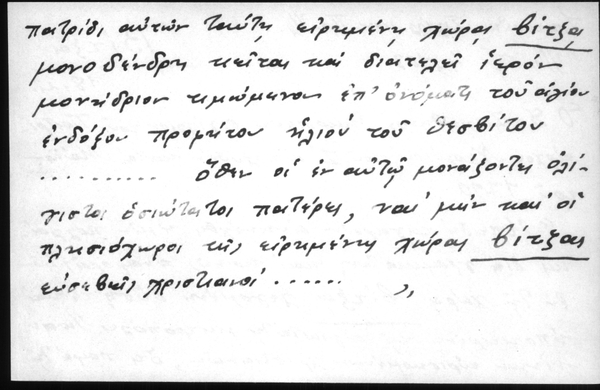 πατρίδι αὐτῶν ταύτῃ εἰρημένῃ χώρᾳ Βίτζᾳ
μονοδένδρῃ κεῖται καὶ διατελεῖ ἱερὸν
μονύδριον τιμώμενον ἐπ' ὀνόματι τοῦ ἁγίου
ἐνδόξου προφήτου ἡλιοῦ τοῦ θεσβίτου
........... ὅθεν οἱ ἐν αὐτῷ μονάζοντες ὀλί-
γιστοι ὁσιώτατοι πατέρες, ναὶ μὴν καὶ οἱ
πλησιόχωροι τῆς εἰρημένης χώρας Βίτζας
εὐσεβεῖς χριστιανοί ...... ,,